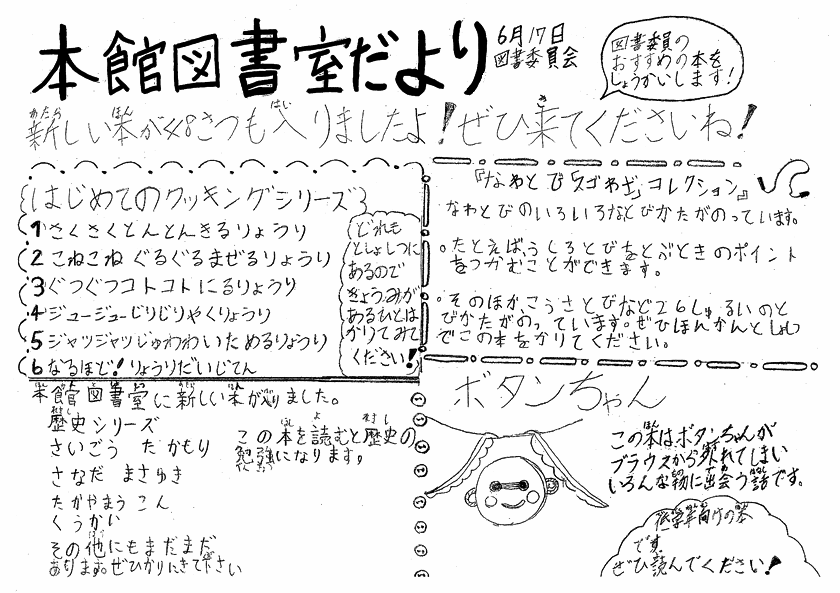 本館図書室だより
6月17日
図書委員会
図書委員の
おすすめの本を
しょうかいします!
新しい本が48さつも入りましたよ!ぜひ来てくださいね!
はじめてのクッキングシリーズ
1 さくさくとんとんきるりょうり
2 こねこね ぐるぐるまぜるりょうり
3 ぐつぐつコトコトにるりょうり
4 ジュージューじりじりやくりょうり
5 ジャッジャッじゅわわいためるりょうり
6 なるほど!りょうりだいじてん
どれも
としょしつに
あるので
きょうみが
あるひとは
かりてみて
ください!
『なわとび「スゴわざ」コレクション』
なわとびのいろいろなとびかたがのっています。
。たとえば、うしろとびをとぶときのポイント
をつかむことができます。
。そのほかこうさとびなど26しゅるいのと
びかたがのっています。ぜひほんかんとしょしつ
でこの本をかりてください。
本館図書室に新しい本が入りました。
歴史シリーズ
さいごう たかもり
さなだ まさゆき
たかやまうこん
くうかい
その他にもまだまだ
あります。ぜひかりにきて下さい
この本を読むと歴史の
勉強になります。
ボタンちゃん
この本はボタンちゃんが
ブラウスから取れてしまい
いろんな物に出会う話です。
低学年向けの本
です。
ぜひ読んでください!